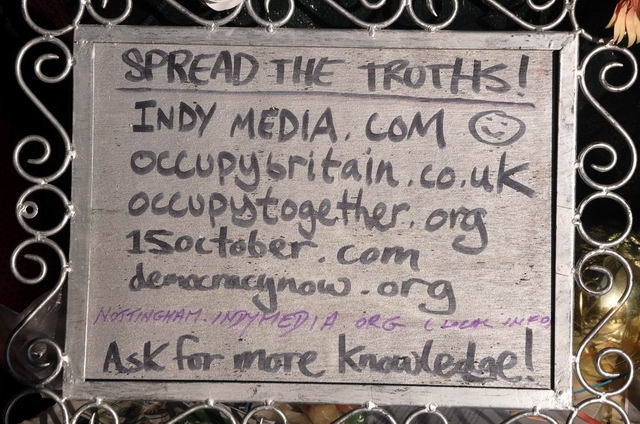 SPREAD THE TROTHS!
INDY MEDIA.COM
occupybritain.co.uk
occupytogether.org
15october.com
democracynow.org
NOTTINGHAM.INDYMEDIA ORG (LOCAL INFO)
Ask for more knowledge!